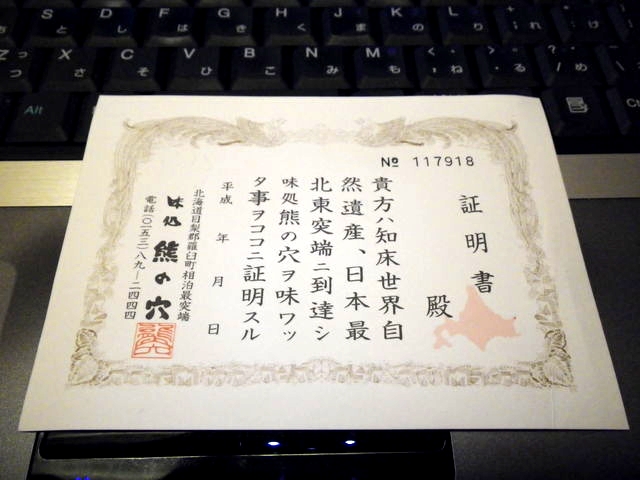 S D F G H J K L
Z X C V B N M
Alt
№ 117918
証明書
殿
貴方ハ知床世界自
然遺産、日本最
北東突端ニ到達シ
味処熊の穴ヲ味ワッ
タ事ヲココニ証明スル
平成 年 月 日
北海道目梨郡羅臼町相泊最突端
味処 熊の穴
電話(〇一五三)八九-二四四四